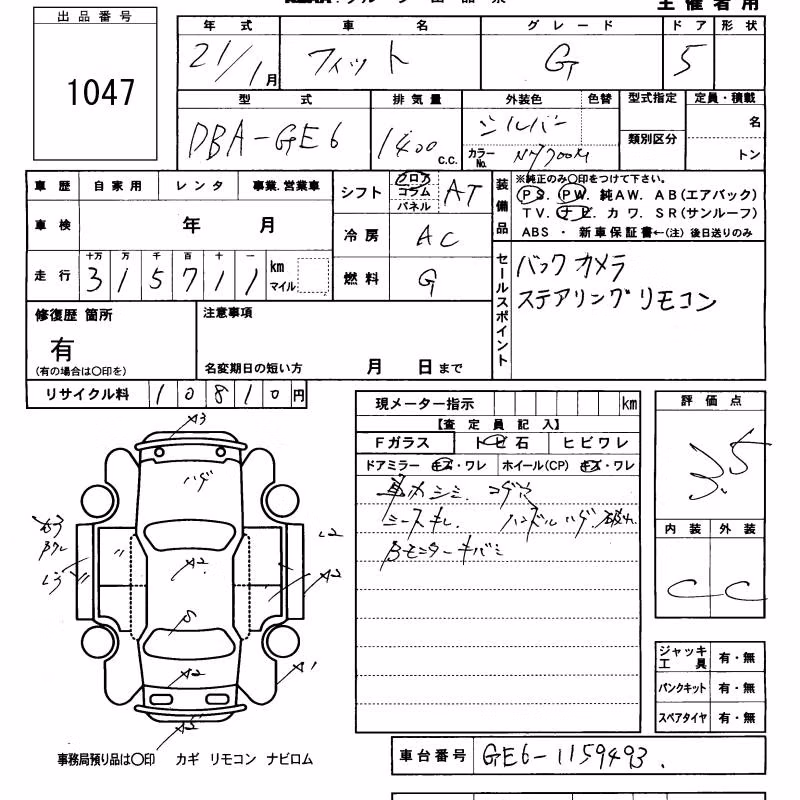 主催者用
出品番号
1047
年式 車名 グレード ドア 形状
21/1月 フィット G 5
型式 排気量 外装色 色替 型式指定 定員・積載
DBA-GE6 1400 c.c. シルバー カラーNo. NH700M 類別区分 名 トン
車歴 自家用 レンタ 事業.営業車
シフト フロア コラム パネル AT
装備品
※純正のみ〇印をつけて下さい。
PS. PW. 純AW. AB(エアバック)
TV. ナビ. カワ. SR(サンルーフ)
ABS ・ 新車保証書←(注) 後日送りのみ
車検 年 月
冷房 AC
走行 十万 万 千 百 十 一
315711 km マイル
燃料 G
セールスポイント
バックカメラ
ステアリングリモコン
修復歴 箇所
有
(有の場合は〇印を)
注意事項
名変期日の短い方 月 日まで
リサイクル料 10810円
現メーター指示 km
【査定員記入】
Fガラス トビ石 ヒビワレ
ドアミラー キズ・ワレ ホイール(CP) キズ・ワレ
コゲ穴
シースキレ. ハンドルハゲ.
モニターキバミ
評価点
3.5
内装 外装
C C
A3
ハゲ
A2
A2
L2
A2
A1
ジャッキ 工具 有・無
パンクキット 有・無
スペアタイヤ 有・無
事務局預り品は〇印 カギ リモコン ナビロム
車台番号 GE6-1159493.